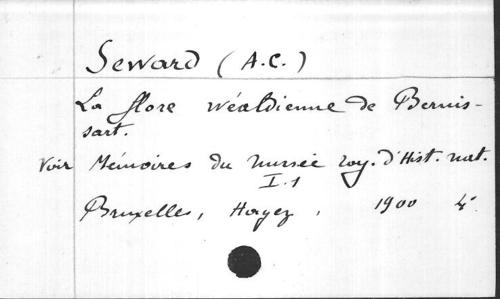 Seward (A.C.)
La flore wéaldienne de Bernis-
sart.
Voir Mémoires du Musée roy. d'Hist. nat.
I.1
Bruxelles, Hayez, 1900 4°